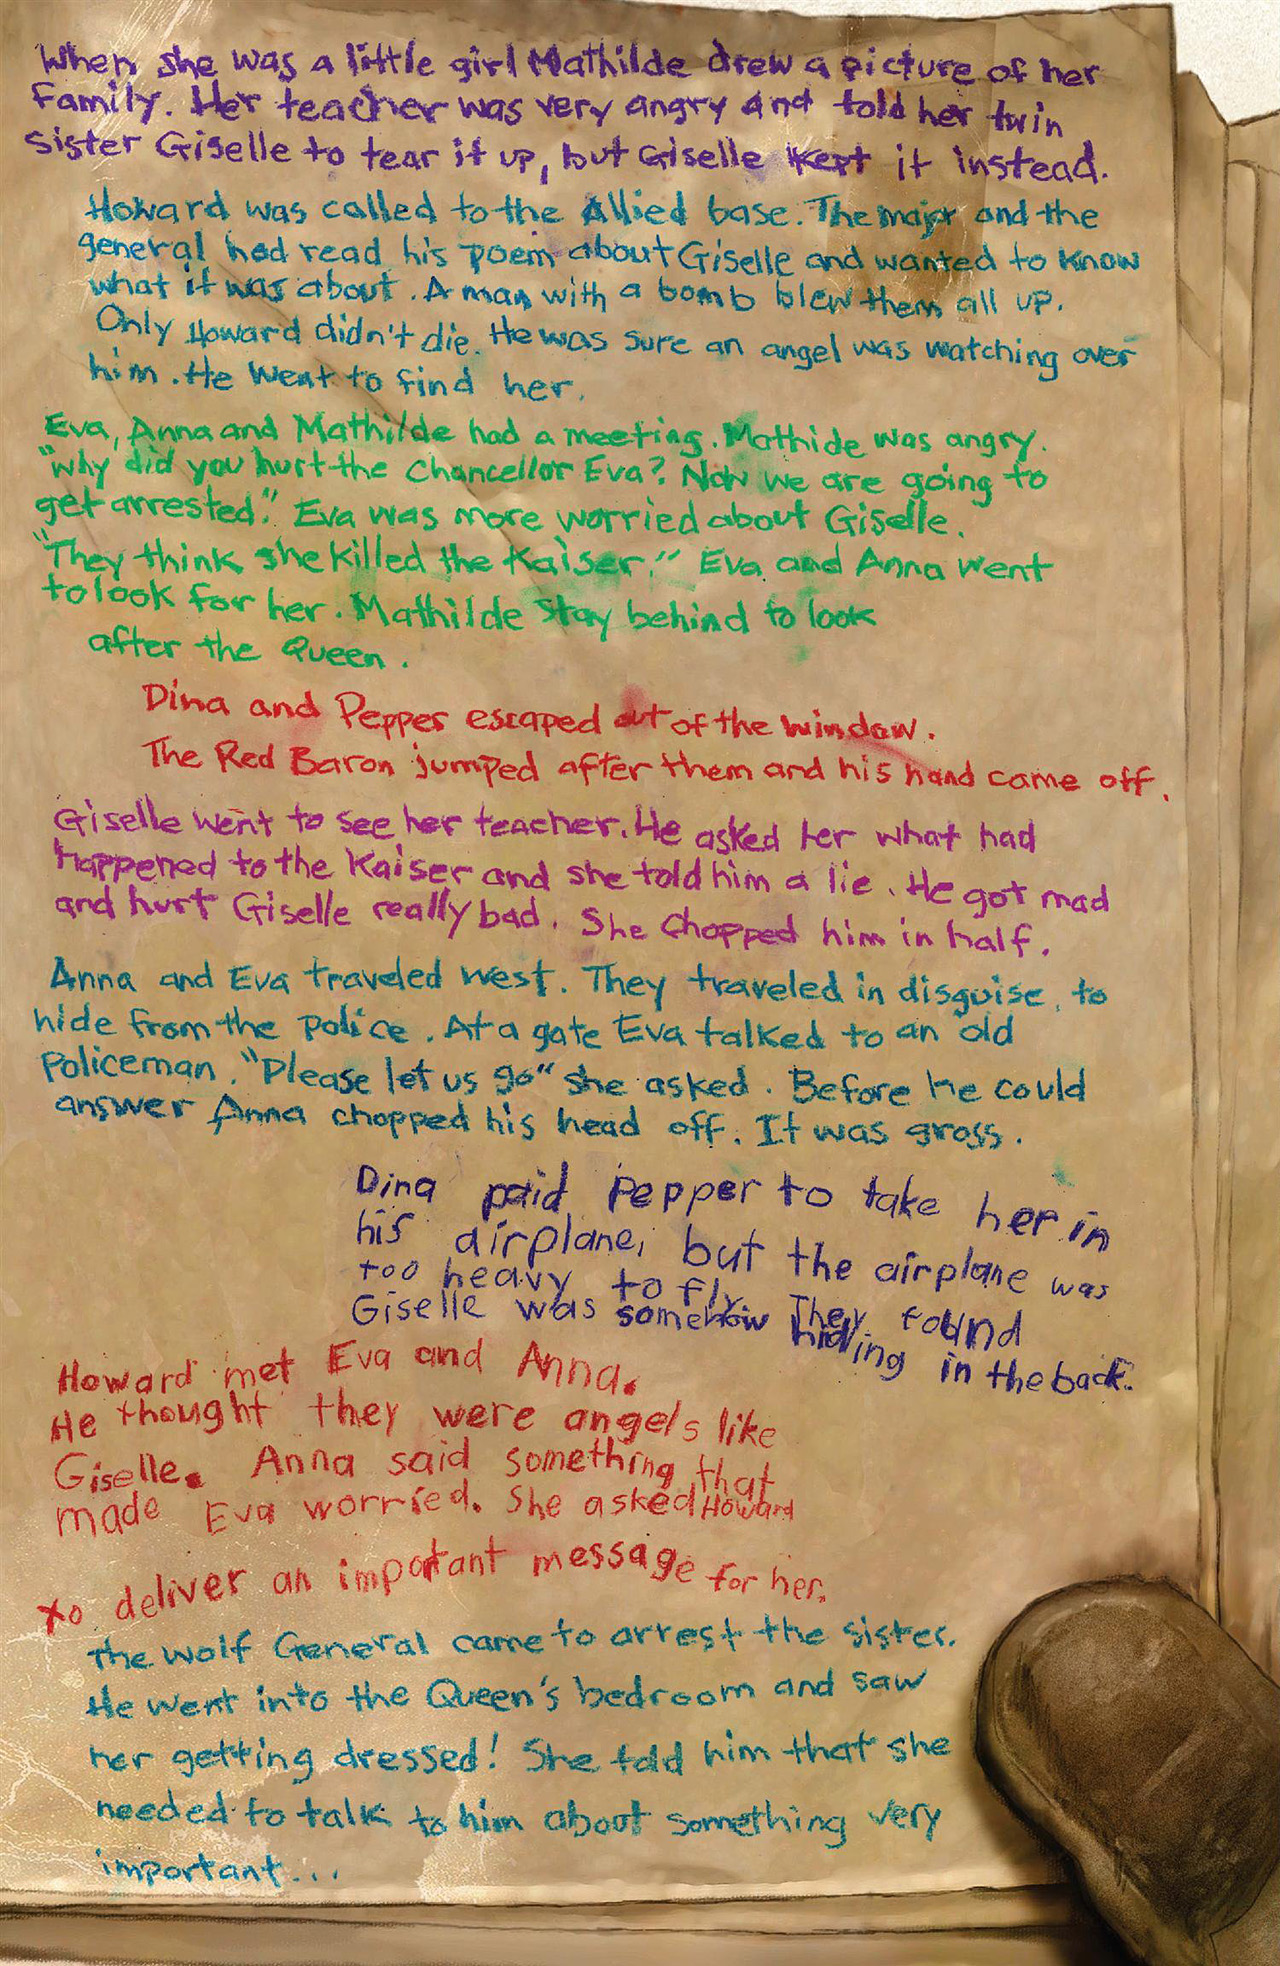 When she was a little girl Mathilde drew a picture of her
Family. Her teacher was very angry and told her twin
Sister Giselle to tear it up, but Giselle kept it instead.
Howard was called to the Allied base. The major and the
general had read his poem about Giselle and wanted to know
what it was about. A man with a bomb blew them all up.
Only Howard didn't die. He was sure an angel was watching over
him. He went to find her.
Eva, Anna and Mathilde had a meeting. Mathide was angry.
"Why did you hurt the Chancellor Eva? Now we are going to
get arrested." Eva was more worried about Giselle.
"They think she killed the Kaiser." Eva and Anna went
to look for her. Mathilde stay behind to look
after the Queen.
Dina and Pepper escaped out of the window.
The Red Baron jumped after them and his hand came off.
Giselle went to see her teacher. He asked her what had
happened to the Kaiser and she told him a lie. He got mad
and hurt Giselle really bad. She chopped him in half.
Anna and Eva traveled west. They traveled in disguise, to
hide from the police. At a gate Eva talked to an old
Policeman. "Please let us go" she asked. Before he could
answer Anna chopped his head off. It was gross.
Dina paid Pepper to take her in
his airplane, but the airplane was
too heavy to fly. They found
Giselle was somehow hiding in the back.
Howard met Eva and Anna.
He thought they were angels like
Giselle. Anna said something that
made Eva worried. She asked Howard
to deliver an important message for her.
The Wolf General came to arrest the sister.
He went into the Queen's bedroom and saw
her getting dressed! She told him that she
needed to talk to him about something very
important...